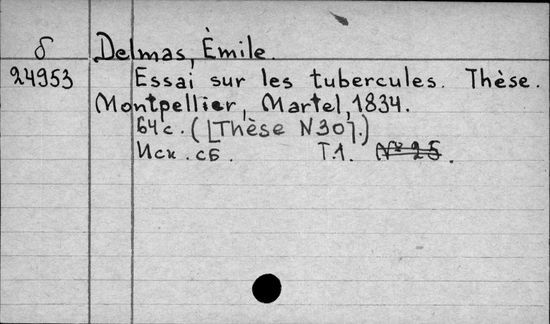 δ Delmas, Émile.
24953 Essai sur les tubercules. Thèse.
Montpellier, Martel, 1834.
64 с. ([Thèse N30].)
Иск. сб. Т.1. № 25.